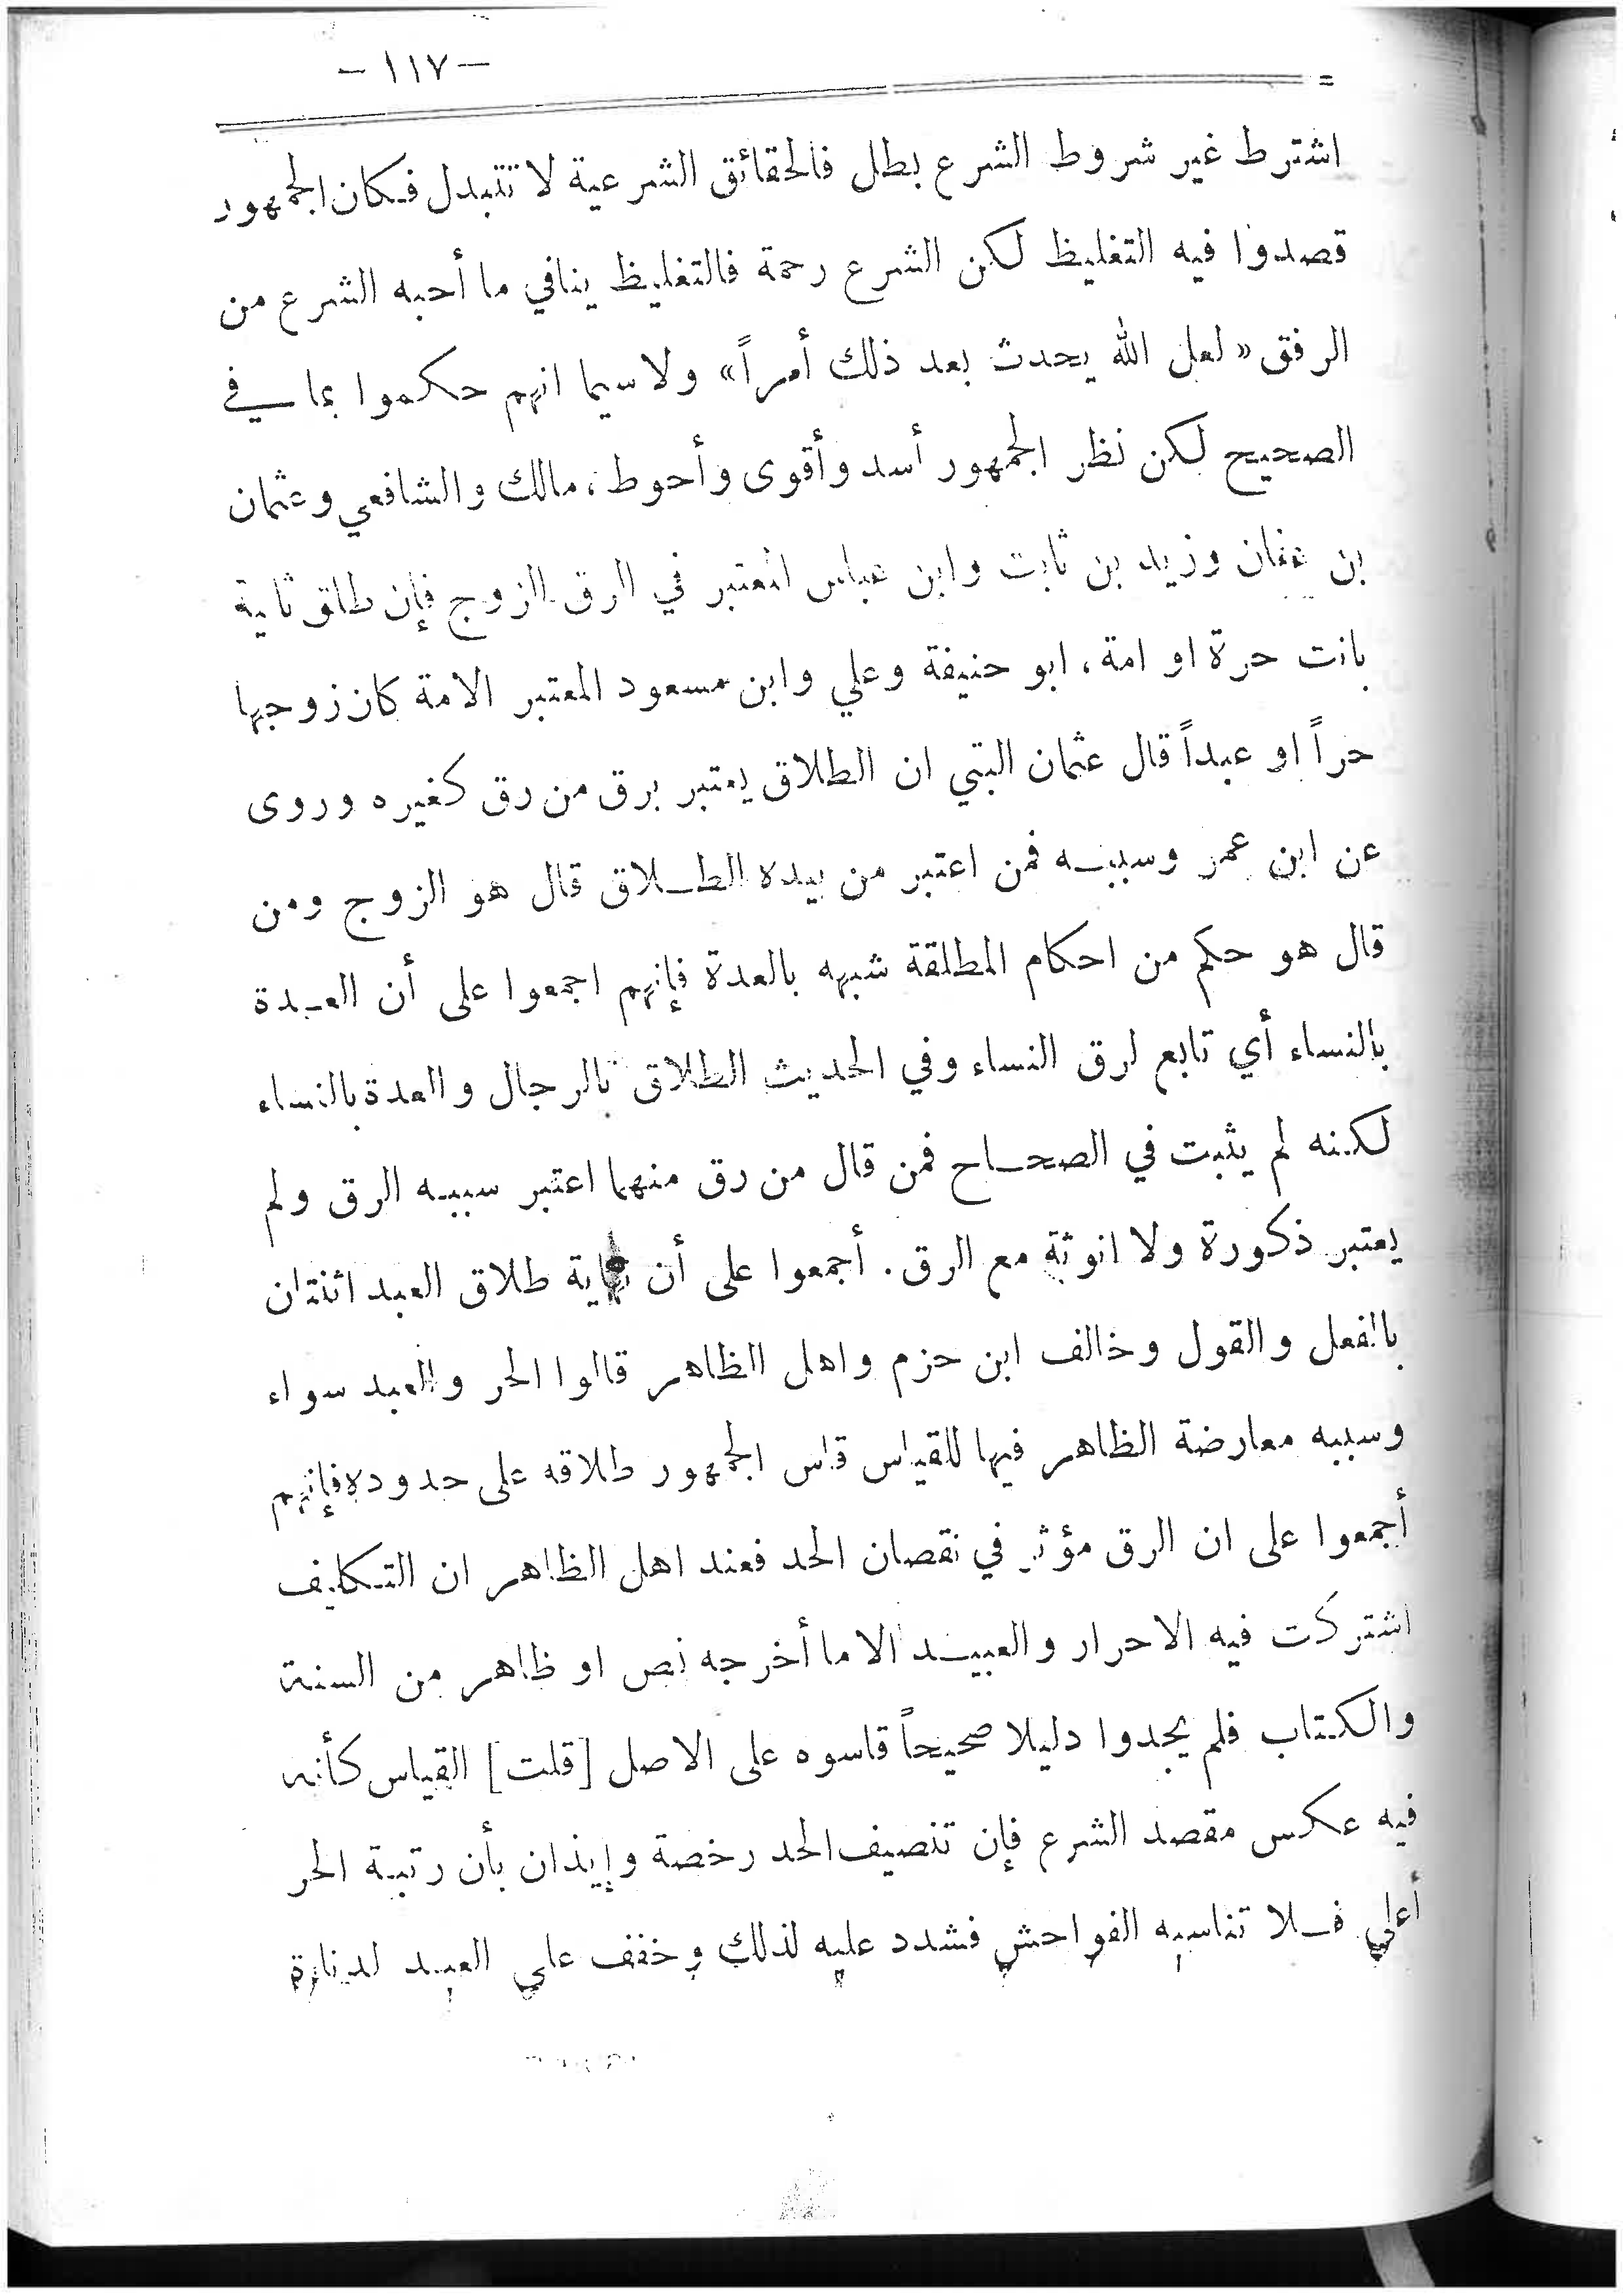 -١١٧-
اشترط غير شروط الشرع بطل فالحقائق الشرعية لا تتبدل فكان الجمهور
قصدوا فيه التغليظ لكن الشرع رحمة فالتغليظ ينافي ما أحبه الشرع من
الرفق «لعل الله يحدث بعد ذلك أمراً» ولا سيما انهم حكموا بما في
الصحيح لكن نظر الجمهور أسد وأقوى وأحوط، مالك والشافعي وعثمان
بن عفان وزيد بن ثابت وابن عباس المعتبر في الرق الزوج فإن طلق ثانية
بانت حرة او امة، ابو حنيفة وعلي وابن مسعود المعتبر الامة كان زوجها
حراً او عبداً قال عثمان البتي ان الطلاق يعتبر برق من رق كغيره وروى
عن ابن عمر وسببه فمن اعتبر من بيده الطلاق قال هو الزوج ومن
قال هو حكم من احكام المطلقة شبهه بالعدة فإنهم اجمعوا على أن العدة
بالنساء أي تابع لرق النساء وفي الحديث الطلاق بالرجال والعدة بالنساء
لكنه لم يثبت في الصحاح فمن قال من رق منهما اعتبر سببه الرق ولم
يعتبر ذكورة ولا انوثة مع الرق. أجمعوا على أن نهاية طلاق العبد اثنتان
بالفعل والقول وخالف ابن حزم واهل الظاهر قالوا الحر والعبد سواء
وسببه معارضة الظاهر فيها للقياس قاس الجمهور طلاقه على حدوده فإنهم
أجمعوا على ان الرق مؤثر في نقصان الحد فعند اهل الظاهر ان التكليف
اشتركت فيه الاحرار والعبيد الا ما أخرجه نص او ظاهر من السنة
والكتاب فلم يجدوا دليلا صحيحاً قاسوه على الاصل [قلت] القياس كأنه
فيه عكس مقصد الشرع فإن تنصيف الحد رخصة وإيذان بأن رتبة الحر
أعلى فلا تناسبه الفواحش فشدد عليه لذلك وخفف على العبد لدناءة